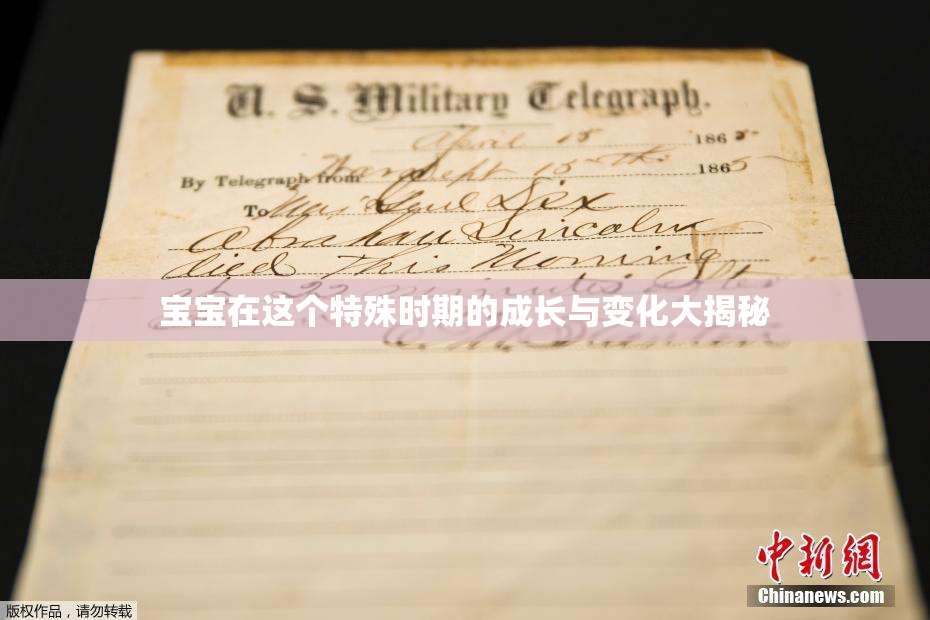 U. S. Military Telegraph.
April 15 1865
By Telegraph from War Dept 15th 1865
To Maj Genl Dix
Abraham Lincoln
died This Morning
at 22 minutes after
宝宝在这个特殊时期的成长与变化大揭秘
中新网
Chinanews.com
版权作品，请勿转载